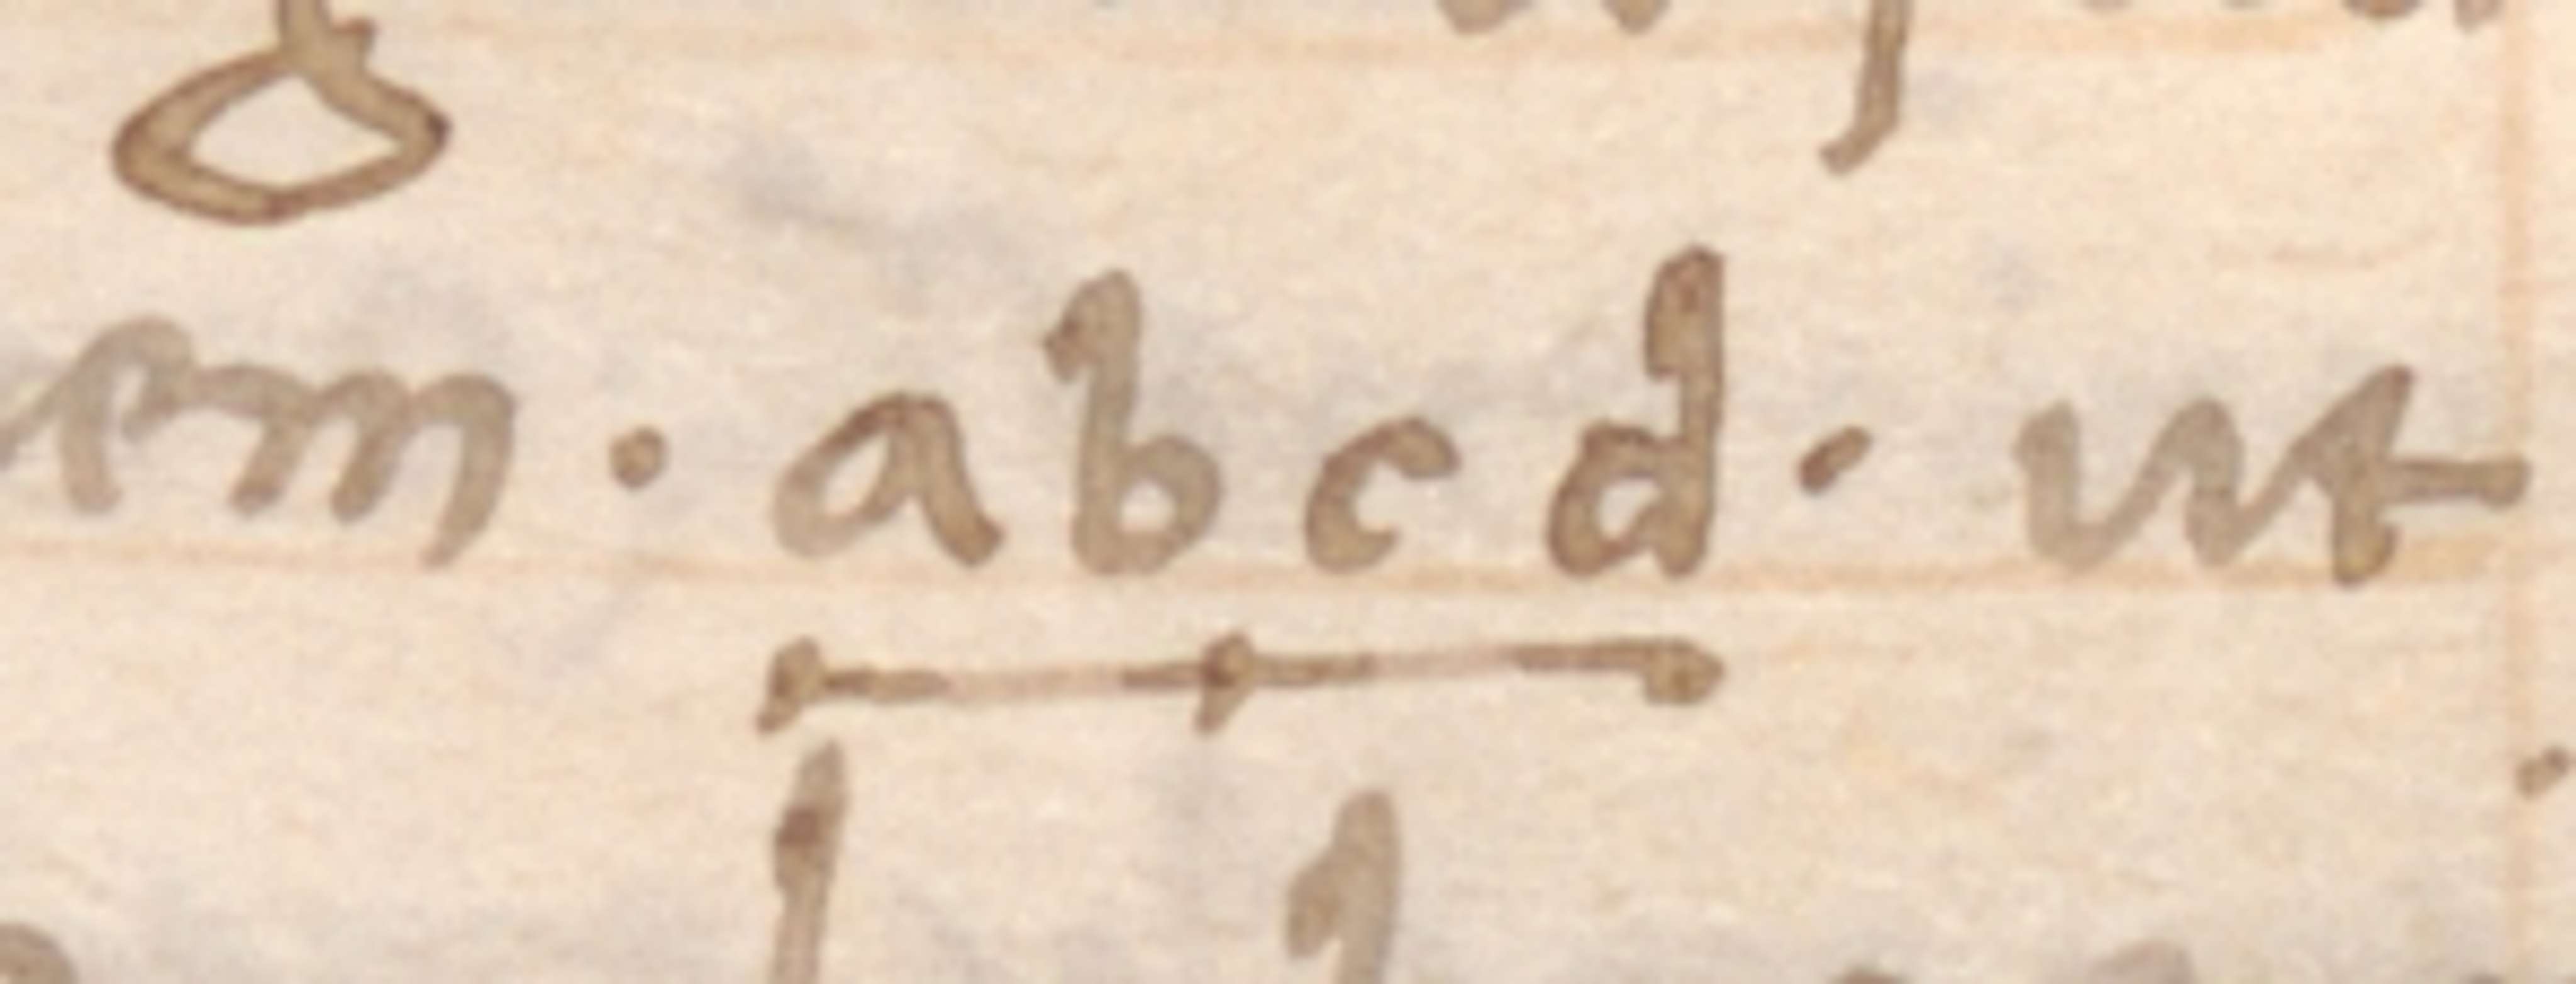 em · abcd · ut